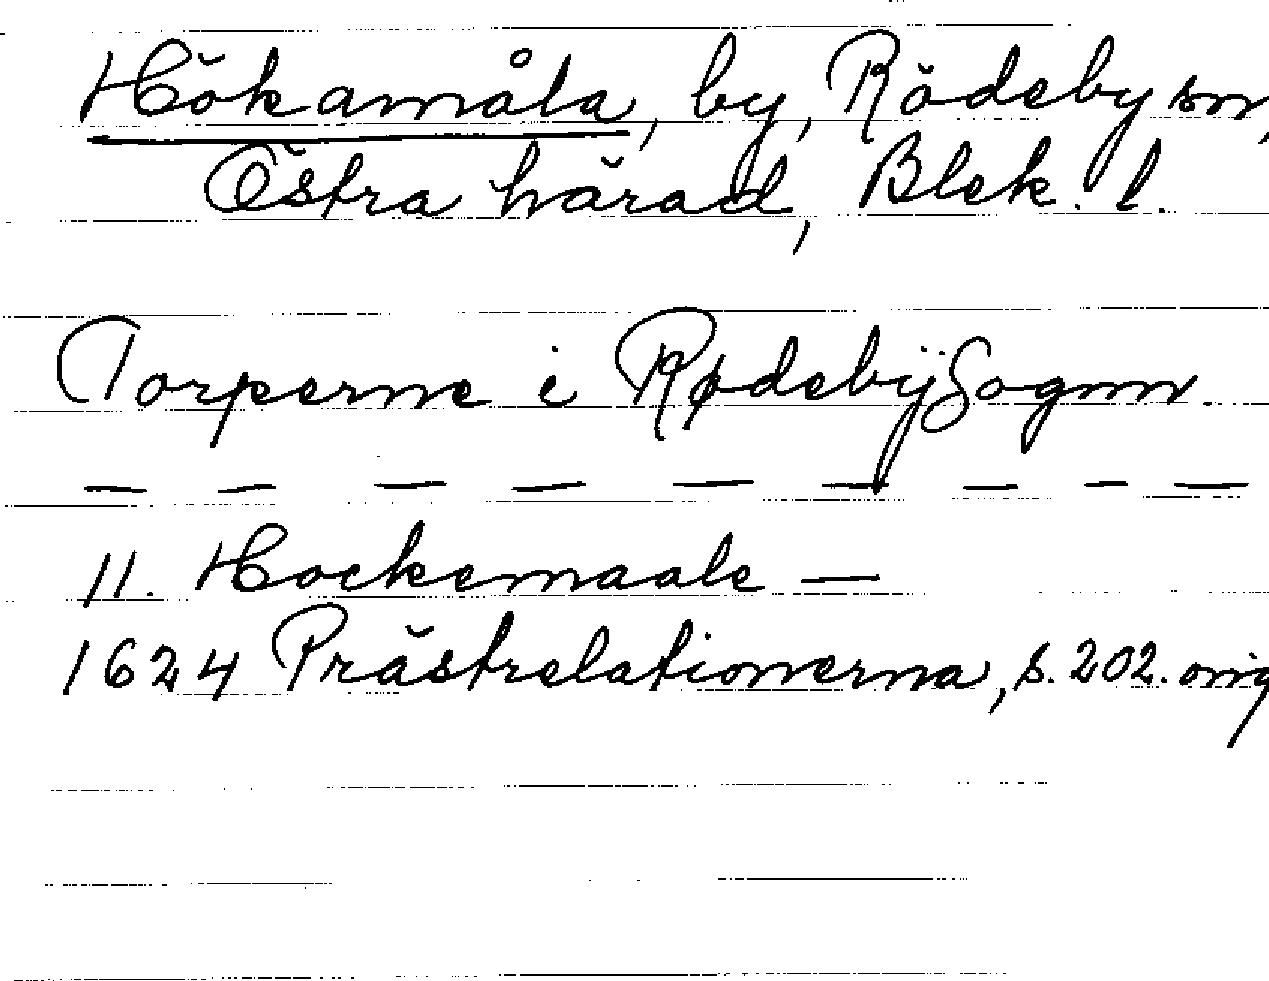 Hökamåla, by, Rödeby sn,
Östra härad, Blek. l.
Torperne i RødebÿSognn
— — — — — — — — —
11. Hockemaale —
1624 Prästrelationerna, s. 202. orig